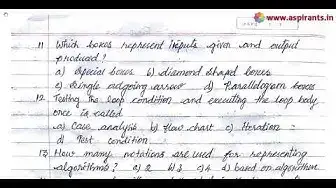 www.aspirants.in
11. Which boxes represent inputs given and output
produced?
a) Special boxes b) diamond shaped boxes
c) Single outgoing arrow d) Parallelogram boxes
12. Testing the loop condition and executing the loop body
once is called
a) Case analysis b) flow chart c) Iteration
d) Test condition
13. How many notations are used for representing
algorithms? a) 2 b) 3 c) 4 d) based on algorithm